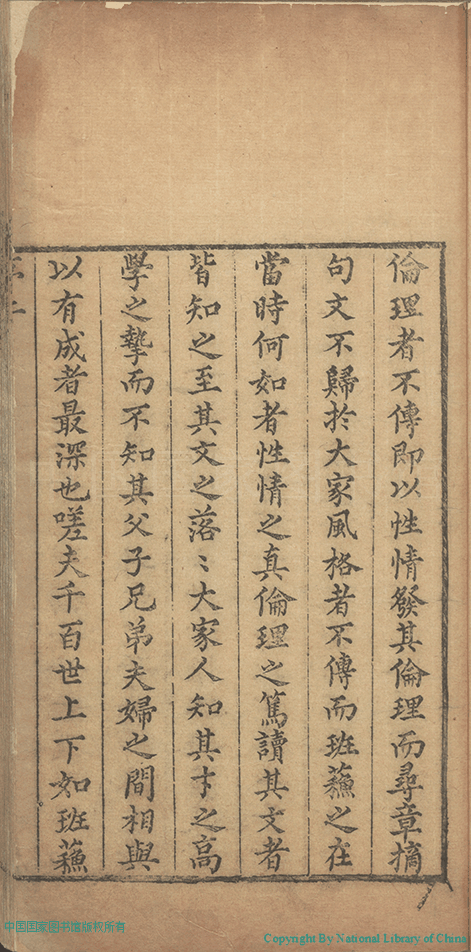 倫理者不傳即以性情發其倫理而尋章摘
句文不歸於大家風格者不傳而班蘓之在
當時何如者性情之真倫理之篤讀其文者
皆知之至其文之落〻大家人知其才之高
學之摯而不知其父子兄弟夫婦之間相與
以有成者最深也嗟夫千百世上下如班蘓
中国国家图书馆版权所有
Copyright By National Library of China